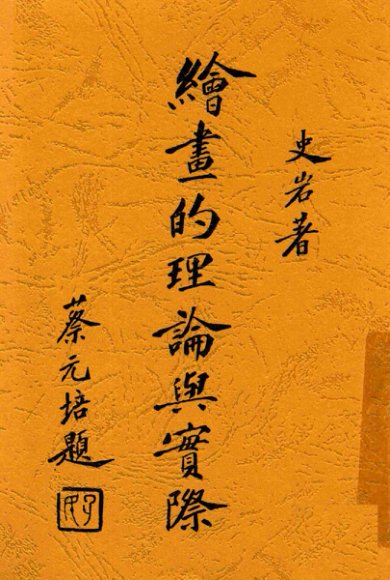 史岩著
繪畫的理論與實際
蔡元培題